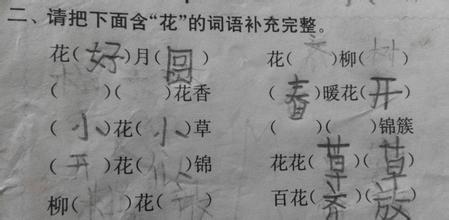 二、请把下面含“花”的词语补充完整。
花(好)月(圆) 花( )柳( )
( )( )花香 (春)暖花(开)
(小)花(小)草 ( )( )锦簇
(开)花( )锦 花花(草)(草)
柳( )花( ) 百花(齐)(放)